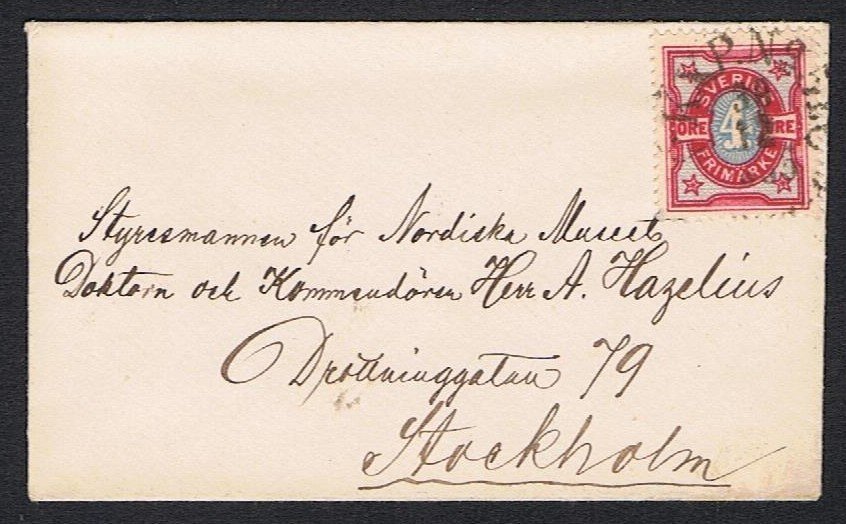 SVERIGE
ÖRE 4 ÖRE
FRIMÄRKE
Styresmannen för Nordiska Museet
Doktorn och Kommendören Herr A. Hazelius
Drottninggatan 79
Stockholm